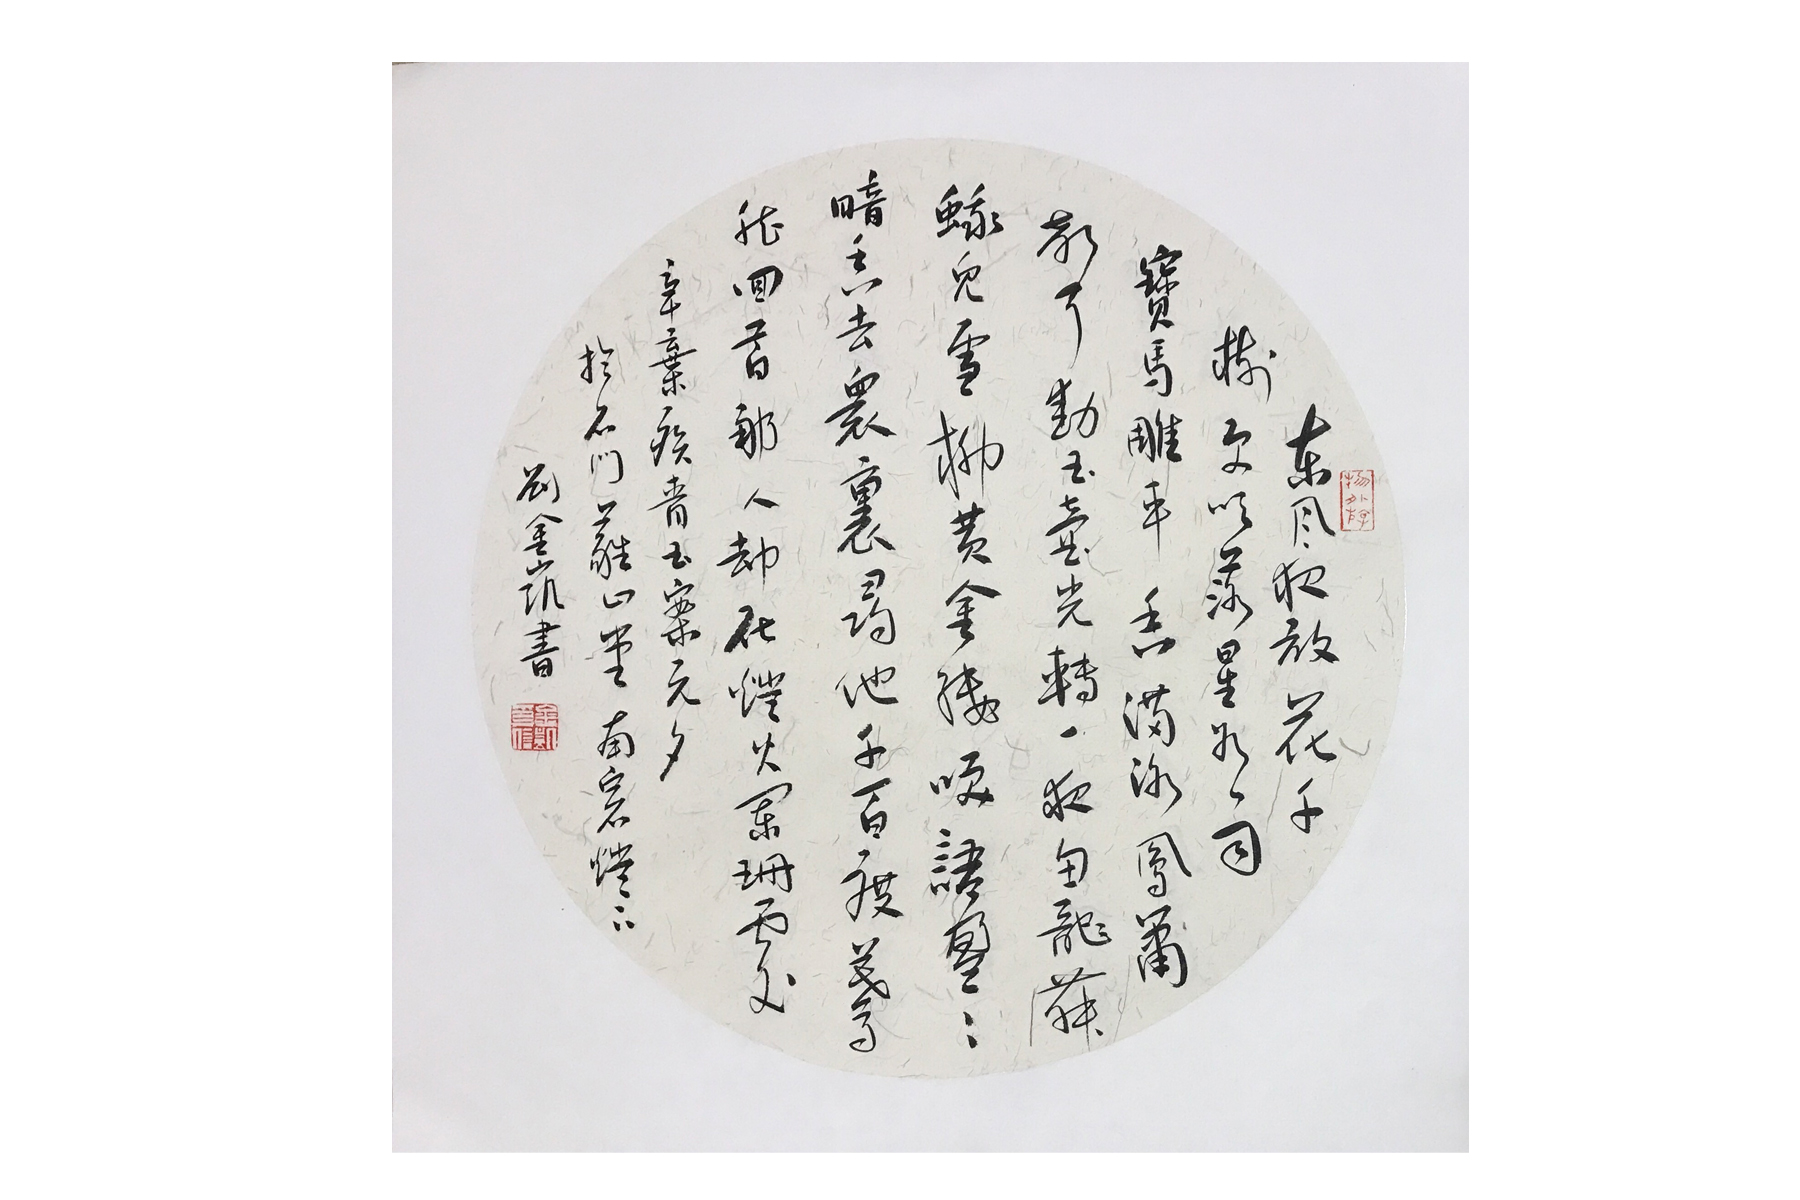 東風夜放花千
樹更吹落星如雨
寶馬雕車香滿路鳳簫
聲動玉壺光轉一夜魚龍舞
蛾兒雪柳黃金縷咲語盈〻
暗香去眾裏尋他千百度驀
然回首那人卻在燈火闌珊處
辛棄疾青玉案元夕
於石門山堂南窗燈下
劉金凱書
物外游